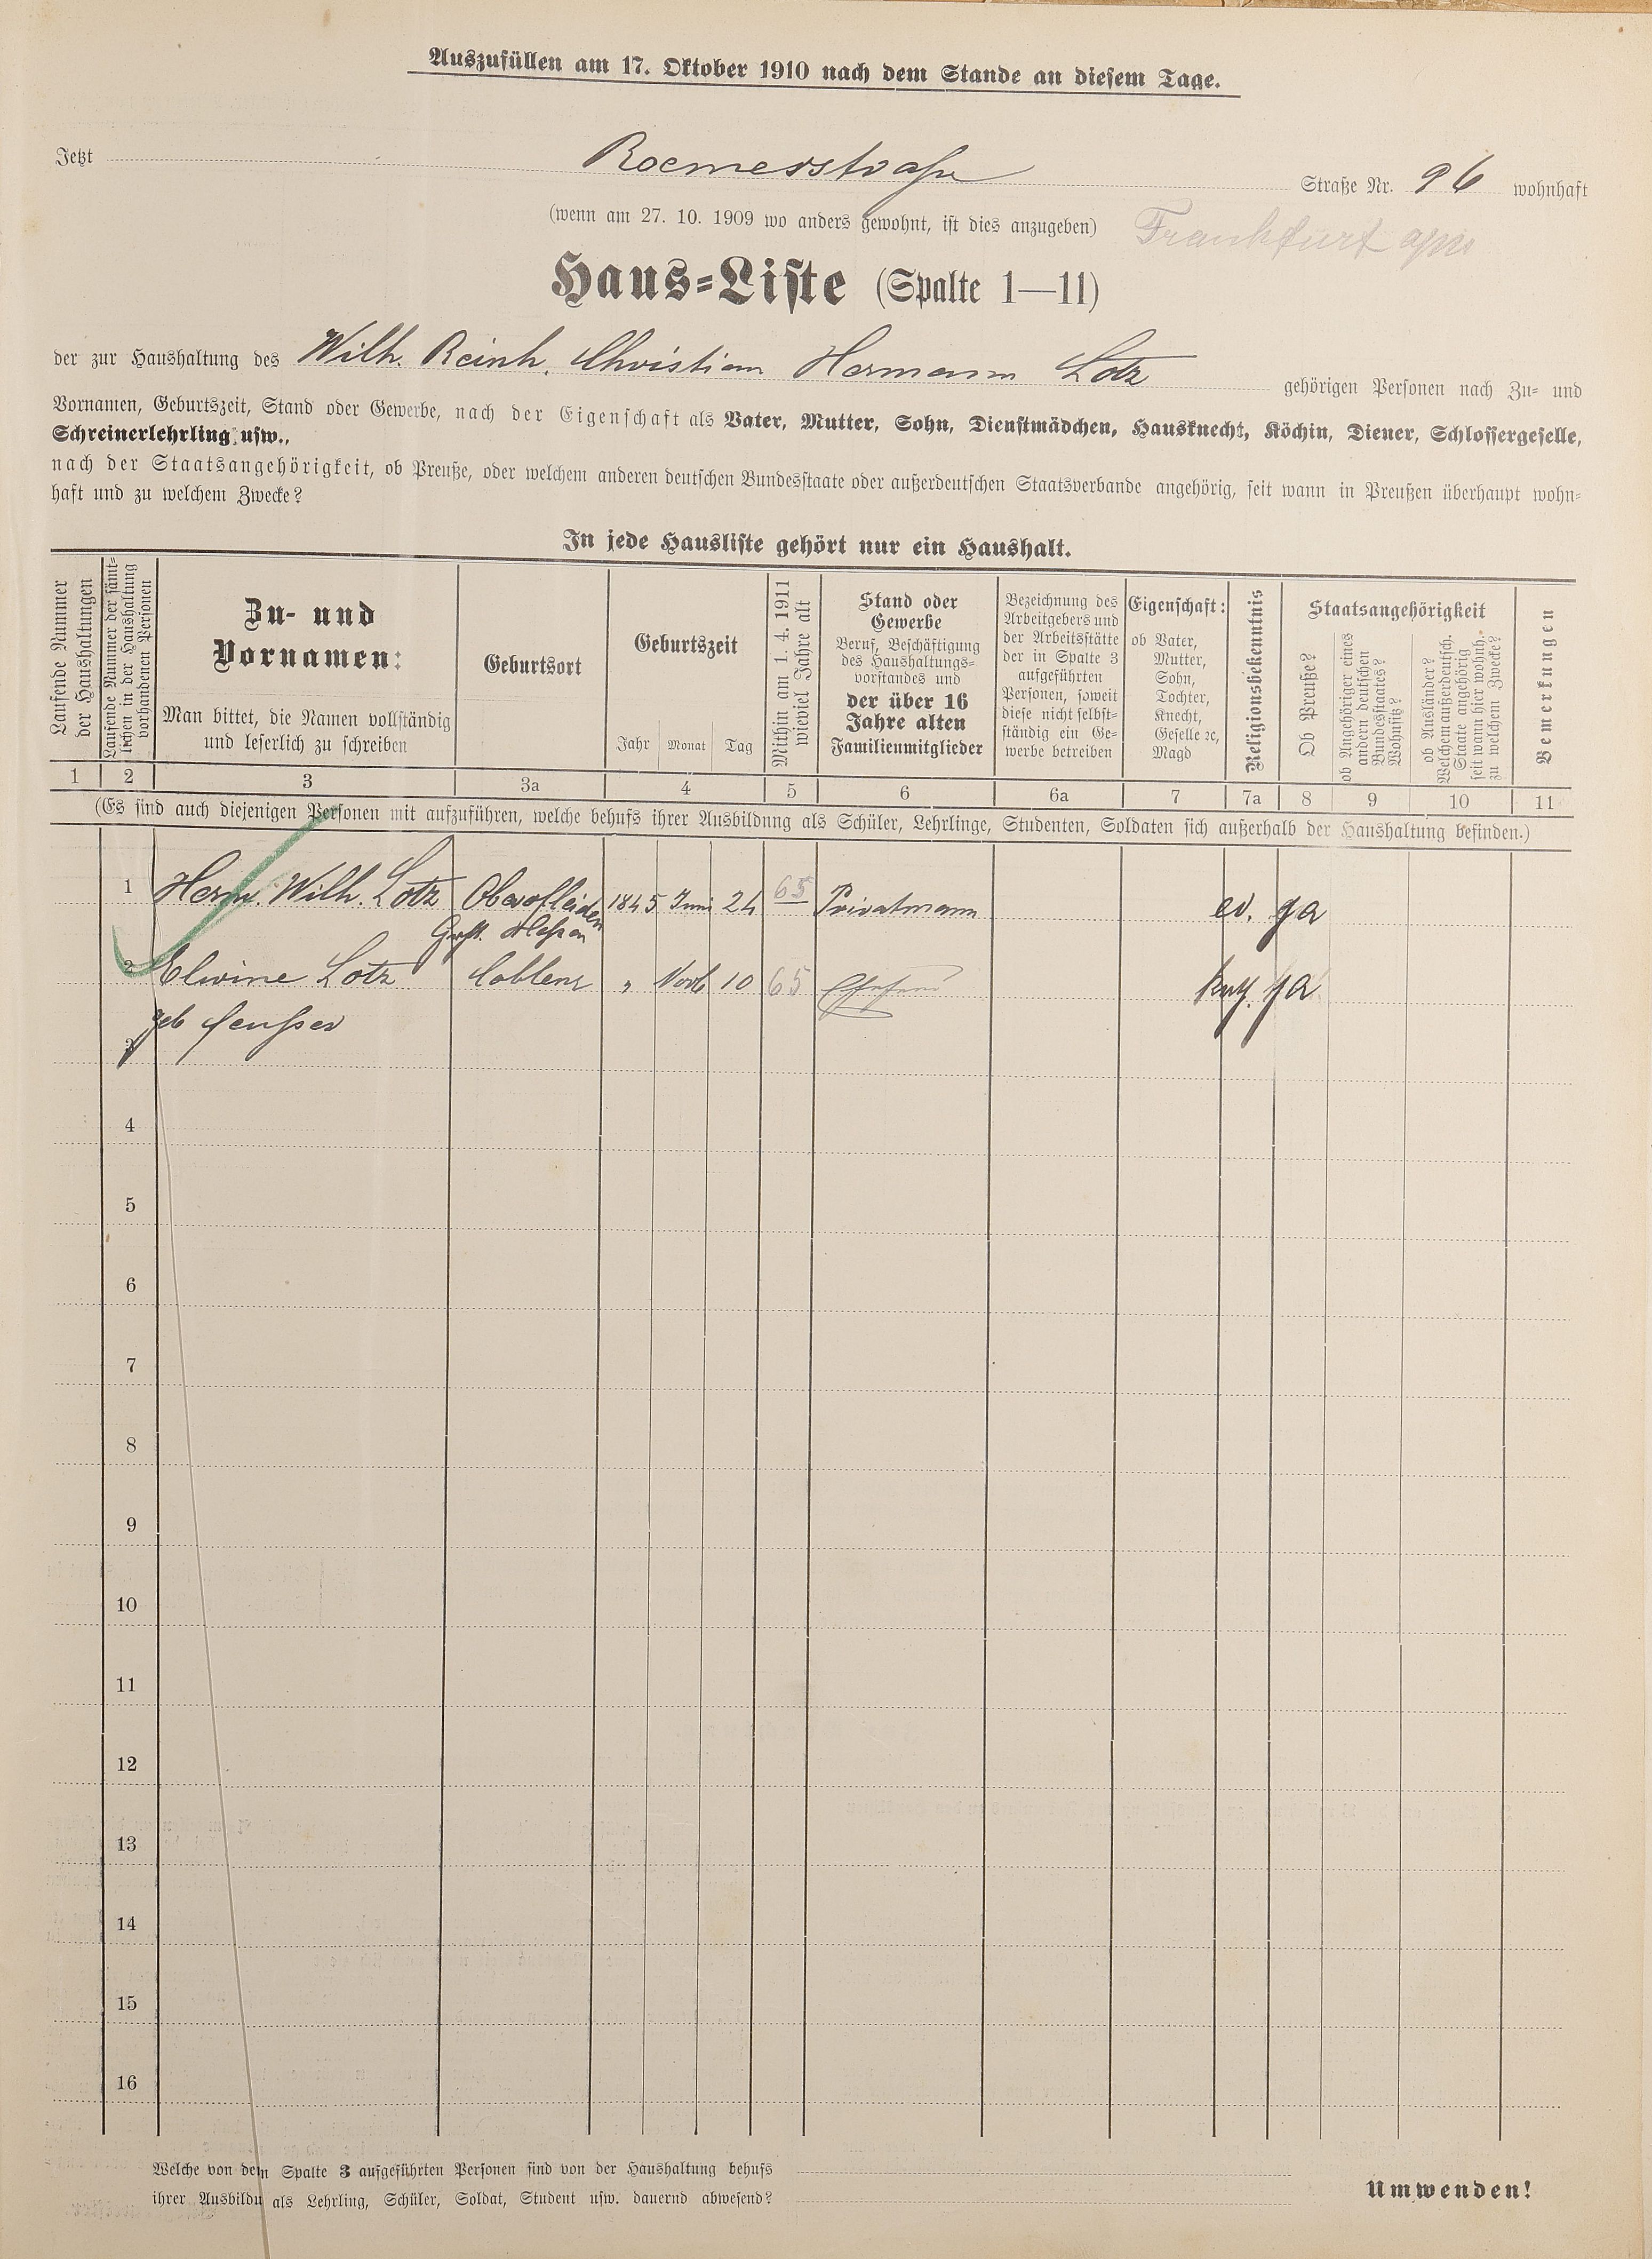 Auszufüllen am 17. Oktober 1910 nach dem Stande an diesem Tage.
Jetzt Roemerstraße Straße Nr. 96 wohnhaft
(wenn am 27. 10. 1909 wo anders gewohnt, ist dies anzugeben) Frankfurt
Haus-Liste (Spalte 1—11)
der zur Haushaltung des Wilh. Reinh. Christian Hermann Lotz gehörigen Personen nach Zu- und
Vornamen, Geburtszeit, Stand oder Gewerbe, nach der Eigenschaft als Vater, Mutter, Sohn, Dienstmädchen, Hausknecht, Köchin, Diener, Schlossergeselle,
Schreinerlehrling usw.,
nach der Staatsangehörigkeit, ob Preuße, oder welchem anderen deutschen Bundesstaate oder außerdeutschen Staatsverbande angehörig, seit wann in Preußen überhaupt wohn-
haft und zu welchem Zwecke?
In jede Hausliste gehört nur ein Haushalt.
Laufende Nummer
der Haushaltungen
Laufende Nummer der sämt-
lichen in der Haushaltung
vorhandenen Personen
Zu- und
Vornamen:
Man bittet, die Namen vollständig
und leserlich zu schreiben
Geburtsort
Geburtszeit
Jahr Monat Tag
Mithin am 1. 4. 1911
wieviel Jahre alt
Stand oder
Gewerbe
Beruf, Beschäftigung
des Haushaltungs-
vorstandes und
der über 16
Jahre alten
Familienmitglieder
Bezeichnung des
Arbeitgebers und
der Arbeitsstätte
der in Spalte 3
aufgeführten
Personen, soweit
diese nicht selbst-
ständig ein Ge-
werbe betreiben
Eigenschaft:
ob Vater,
Mutter,
Sohn,
Tochter,
Knecht,
Geselle ꝛc,
Magd
Religionsbekenntnis
Staatsangehörigkeit
Ob Preuße?
ob Angehöriger eines
andern deutschen
Bundesstaates?
Wohnsitz?
ob Ausländer?
Welchem außerdeutsch.
Staate angehörig
seit wann hier wohnh.
zu welchem Zwecke?
Bemerkungen
1 2 3 3a 4 5 6 6a 7 7a 8 9 10 11
(Es sind auch diejenigen Personen mit aufzuführen, welche behufs ihrer Ausbildung als Schüler, Lehrlinge, Studenten, Soldaten sich außerhalb der Haushaltung befinden.)
1 Herm. Wilh. Lotz Oberofleiden 1845 Juni 24 65 Privatmann ev. ja
Großh. Hessen
2 Elwine Lotz Coblenz " Novb 10 65 Ehefrau kath. ja
geb
3
4
5
6
7
8
9
10
11
12
13
14
15
16
Welche von dem Spalte 3 aufgeführten Personen sind von der Haushaltung behufs
ihrer Ausbildu als Lehrling, Schüler, Soldat, Student usw. dauernd abwesend?
Umwenden!